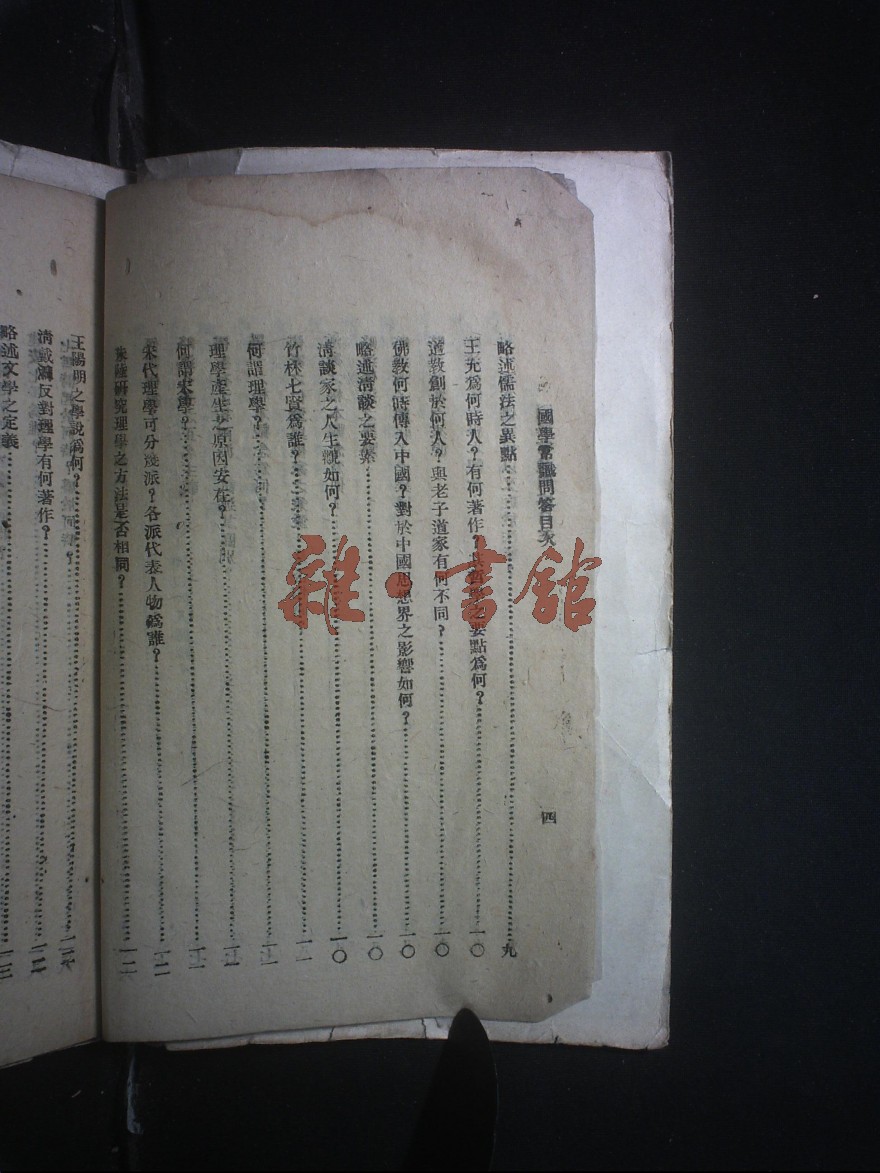 國學常識問答目次
四
略述儒法之異點九
王充爲何時人？有何著作？其哲學之要點爲何？一〇
道教創於何人？與老子道家有何不同？一〇
佛教何時傳入中國？對於中國思想界之影響如何？一〇
略述淸談之要素一〇
淸談家之人生觀如何？一〇
竹林七賢爲誰？一一
何謂理學？一一
理學產生之原因安在？一一
何謂宋學？一二
宋代理學可分幾派？各派代表人物爲誰？一二
朱陸研究理學之方法是否相同？一二
王陽明之學說爲何？
淸戴震反對理學有何著作？
略述文學之定義一三
雜·書館